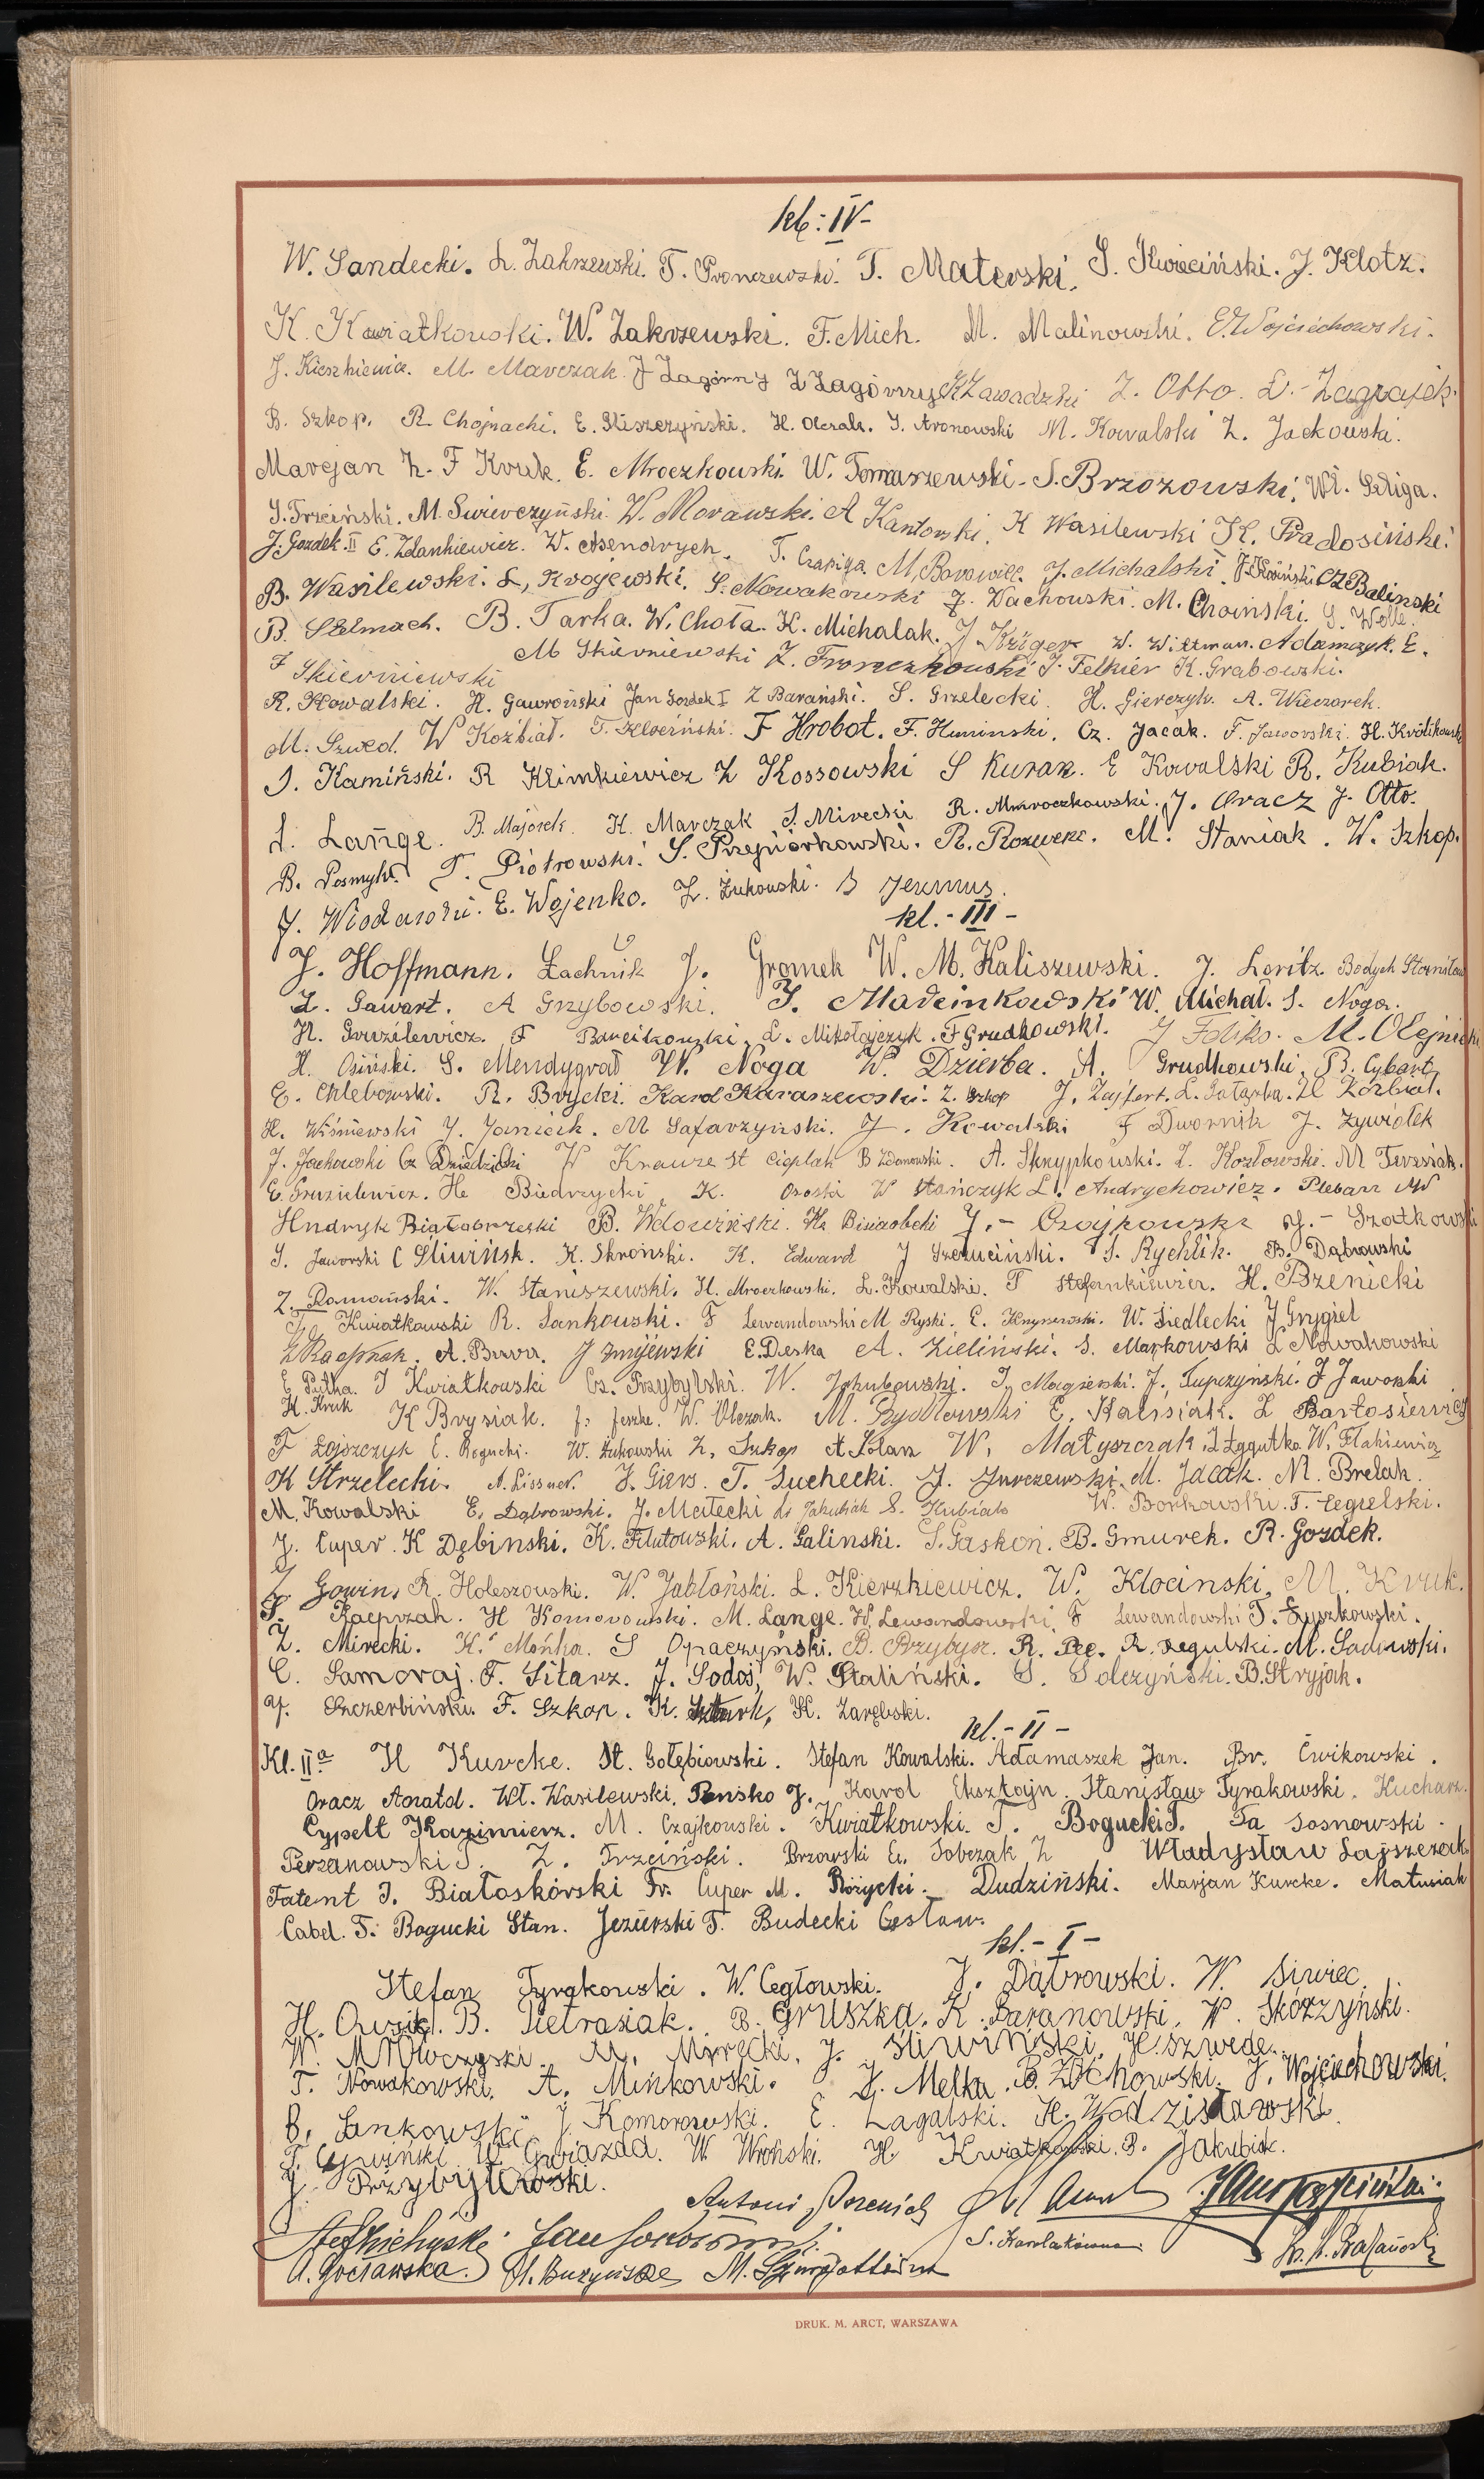 kl: IV-
W. Sandecki. L. Zakrzewski. T. Pronczewski. T. Materski. S. Kwieciński. J. Klotz.
K. Kawiatkowski. W. Zakrzewski. F. Mich. M. Malinowski. E. Wojciechowski.
J. Kieszkiewicz. M. Marczak J Zagórny Z Zagórny K Zawadzki Z. Otto. L. Zagrajek.
B. Szkop. R. Chojnacki. E. Śliszczyński. H. Olczak. J. Aronowski M. Kowalski Z. Jackowski.
Marcjan Z. F Kruk. E. Mroczkowski. W. Tomaszewski. S. Brzozowski. Wł. Szliga.
S. Trzciński. M. Swierczyński. W. Morawski. A Kantowski. K Wasilewski K. Radosiński.
J. Gozdek. II E. Zdankiewicz. W. T. Czapiga. M. Borowiec. J. Michalski. Cz Balinski
B. Wasilewski. L. Krojewski. S. Nowakowski J. Wachowski. M. Choiński. S. Wolle.
B. Stelmach. B. Tarka. W. Chota. K. Michalak. J Krüger W. Wittman. Adamczyk. E.
F Skierniewski M Skierniewski Z. Fronczkowski J. Felkier K. Grabowski.
R. Kowalski. H. Gawroński Jan Gozdek I Z Barański. S. Grzelecki. H. Gierczyk. A. Wieczorek.
M. Szwed. W Koźbiał. T. Kłociński. F Hrobot. F. Huminski. Cz. Jacak. F. Jaworski. H. Królikowski
J. Kamiński. R Klimkiewicz Z Kossowski S Kurak. E Kowalski R. Kubiak.
L. Lange. B. Majorek. K. Marczak S. Mirecki R. Mroczkowski. J. Oracz J. Otto.
B. Posmyk. T. Piotrowski. S. Przepiórkowski. R. M. Staniak. W. Szkop.
J. Włodarski. E. Wojenko. Z. Żukowski. S Jermus.
kl.- III -
J. Hoffmann. Łachnik J. Gromek W. M. Kaliszewski. J. Loritz. Bodych Stanisław
Z. Gawart. A Grzybowski. J. Marcinkowski W. Michał. S. Noga.
H. Gruzilewicz. F Bancikowski. L. Mikołajczyk. F Grudkowski. J Foliks. M. Olejnicki
H. Osiński. S. Mendygrał W. Noga W. Dzierba. A. Grudkowski. B. Cybart.
E. Chlebowski. R. Brycki. Karol Karaszewski. Z. Szkop J. Zajfert. L. Gałązka. H Koźbiał.
H. Wiśniewski J. Janicik. M Safarzyński. J. Kowalski F Dwornik J. Żywiołek
J. Jachowski Cz Dziedzicki W Krauze St Cieplak B Zdanowski. A. Skrypkowski. Z. Kozłowski. M Terziak.
E. Gruzielewicz. He Biedrzycki. K. Ososki W Stańczyk L. Andrychowicz. Plebarz M
Hndryk Białobrzeski B. Wdowiński. He Bisiaobcki J.- Czojkowski J.- Szatkowski
S. Jaworski C Śliwińsk. K. Skroński. K. Edward J Szczuciński. S. Rychlik. B. Dąbrowski
Z. Romański. W. Staniszewski. H. Mroczkowski. L. Kowalski. T Stefankiewicz. H. Brzenicki
J. Kwiatkowski R. Sankowski. F Lewandowski M Ryski. E. W. Siedlecki J Grygiel
Z Kacprzak. A. Burza. J Żmijewski E. Deska A. Zieliński. S. Markowski L Nowakowski
E Putka. J Kwiatkowski Cz. Przybylski. W. Jakubowski. J. Magierski. J. Tupczyński. J Jaworski
H. Kruk K Brysiak. J. Jeszke. W. Olczak. M. Rydlewski E. Walisiak. Z Bartosiewicz
F Łojszczyk E. Rogucki. W. Żukowski Z. Szkop A Polan W. Małyszczak. I Żygutka W. Flakiewicz
K Strzelecki. A. Lissner. J. Giers. T. Suchecki. J. Jurczewski. M. Jacak. M. Brelak.
M. Kowalski E. Dąbrowski. J. Małecki L. Jakubiak S. Kubiak W. Borkowski. T. Cegielski.
J. Cuper. K Dębinski. K. Flutowski. A. Galinski. S. Gaskoń. B. Gmurek. R. Gozdek.
Z Gowin. R. Holeszowski. W. Jabłoński. L. Kierzkiewicz. W. Klocinski. M. Kruk.
S. Kacprzak. H Komorowski. M. Lange. W. Lewandowski. F Lewandowski T. Łyszkowski.
Z. Mirecki. K. Mońka. S Opaczyński. B. Przybysz. R. Ptc. R. Regulski. M. Sadowski.
C. Samoraj. F. Sitarz. J. Sodoś. W. Staliński. S. Solczyński. B. Stryjak.
J. Szczerbiński. F. Szkop. K. Szturk. K. Zarębski.
kl.- II -
Kl. IIa H Kurcke. St. Gołębiowski. Stefan Kowalski. Adamaszek Jan. Br. Ćwikowski.
Oracz Anatol. Wł. Wasilewski. Peńsko J. Karol Eksztajn. Stanisław Tyrakowski. Kucharz.
Cypelt Kazimierz. M. Czajkowski. Kwiatkowski. T. Bogucki T. Ta Sosnowski.
Perzanowski T. Z. Trzciński. Brzowski E. Sobczak Z Władysław Łajszczak
Tatent J. Białoskórski Fr. Cuper M. Różycki. Dudziński. Marjan Kurcke. Matusiak
Cabel. T. Bogucki Stan. Jeziorski T. Budecki Cesław.
kl.- I -
Stefan Tyrakowski. W. Cegłowski. J. Dąbrowski. W. Siwiec.
H. Ćwikl. B. Pietrasiak. B. Gruszka. K. Baranowski. W. Skórzyński.
W. Mrówczyski. M. Mirecki. J. Śliwiński. H. Szwede.
T. Nowakowski. A. Minkowski. J. Melka. B. Żochowski. J. Wojciechowski.
B. Sankowski. J Komorowski. E. Zagalski. H. Wodzisławski.
T. Cywiński W. Gwiazda. W. Wroński. H. Kwiatkowski. B. Jakubik.
J. Przybyłowski.
Antoni Brzenicki
Jan Sokołowski. S. Karolakówna
A. Gocławska. M.
DRUK. M. ARCT, WARSZAWA